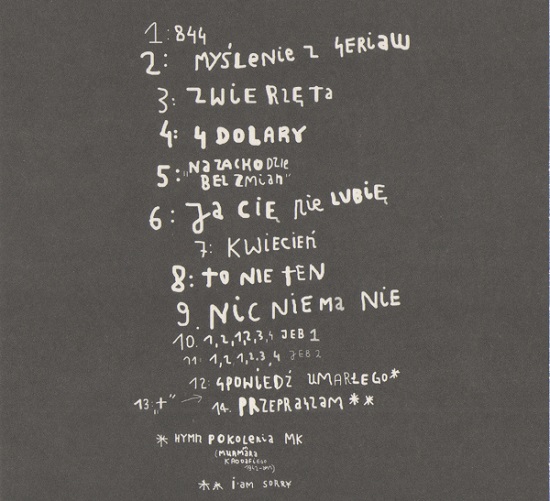 1: 844
2: MYŚLENIE Z SERIAW
3: ZWIERZĘTA
4: 4 DOLARY
5: "NA ZACHODZIE
BEZ ZMIAN"
6: JA CIĘ NIE LUBIĘ
7: KWIECIEŃ
8: TO NIE TEN
9. NIC NIE MA NIE
10. 1,2,1,2,3,4 JEB 1
11: 1,2,1,2.3,4 JEB 2
12: SPOWIEDŹ UMARŁEGO*
13: "+" → 14. PRZEPRASZAM **
* HYMN POKOLENIA MK
(MURMÂRA
** i am SORRY